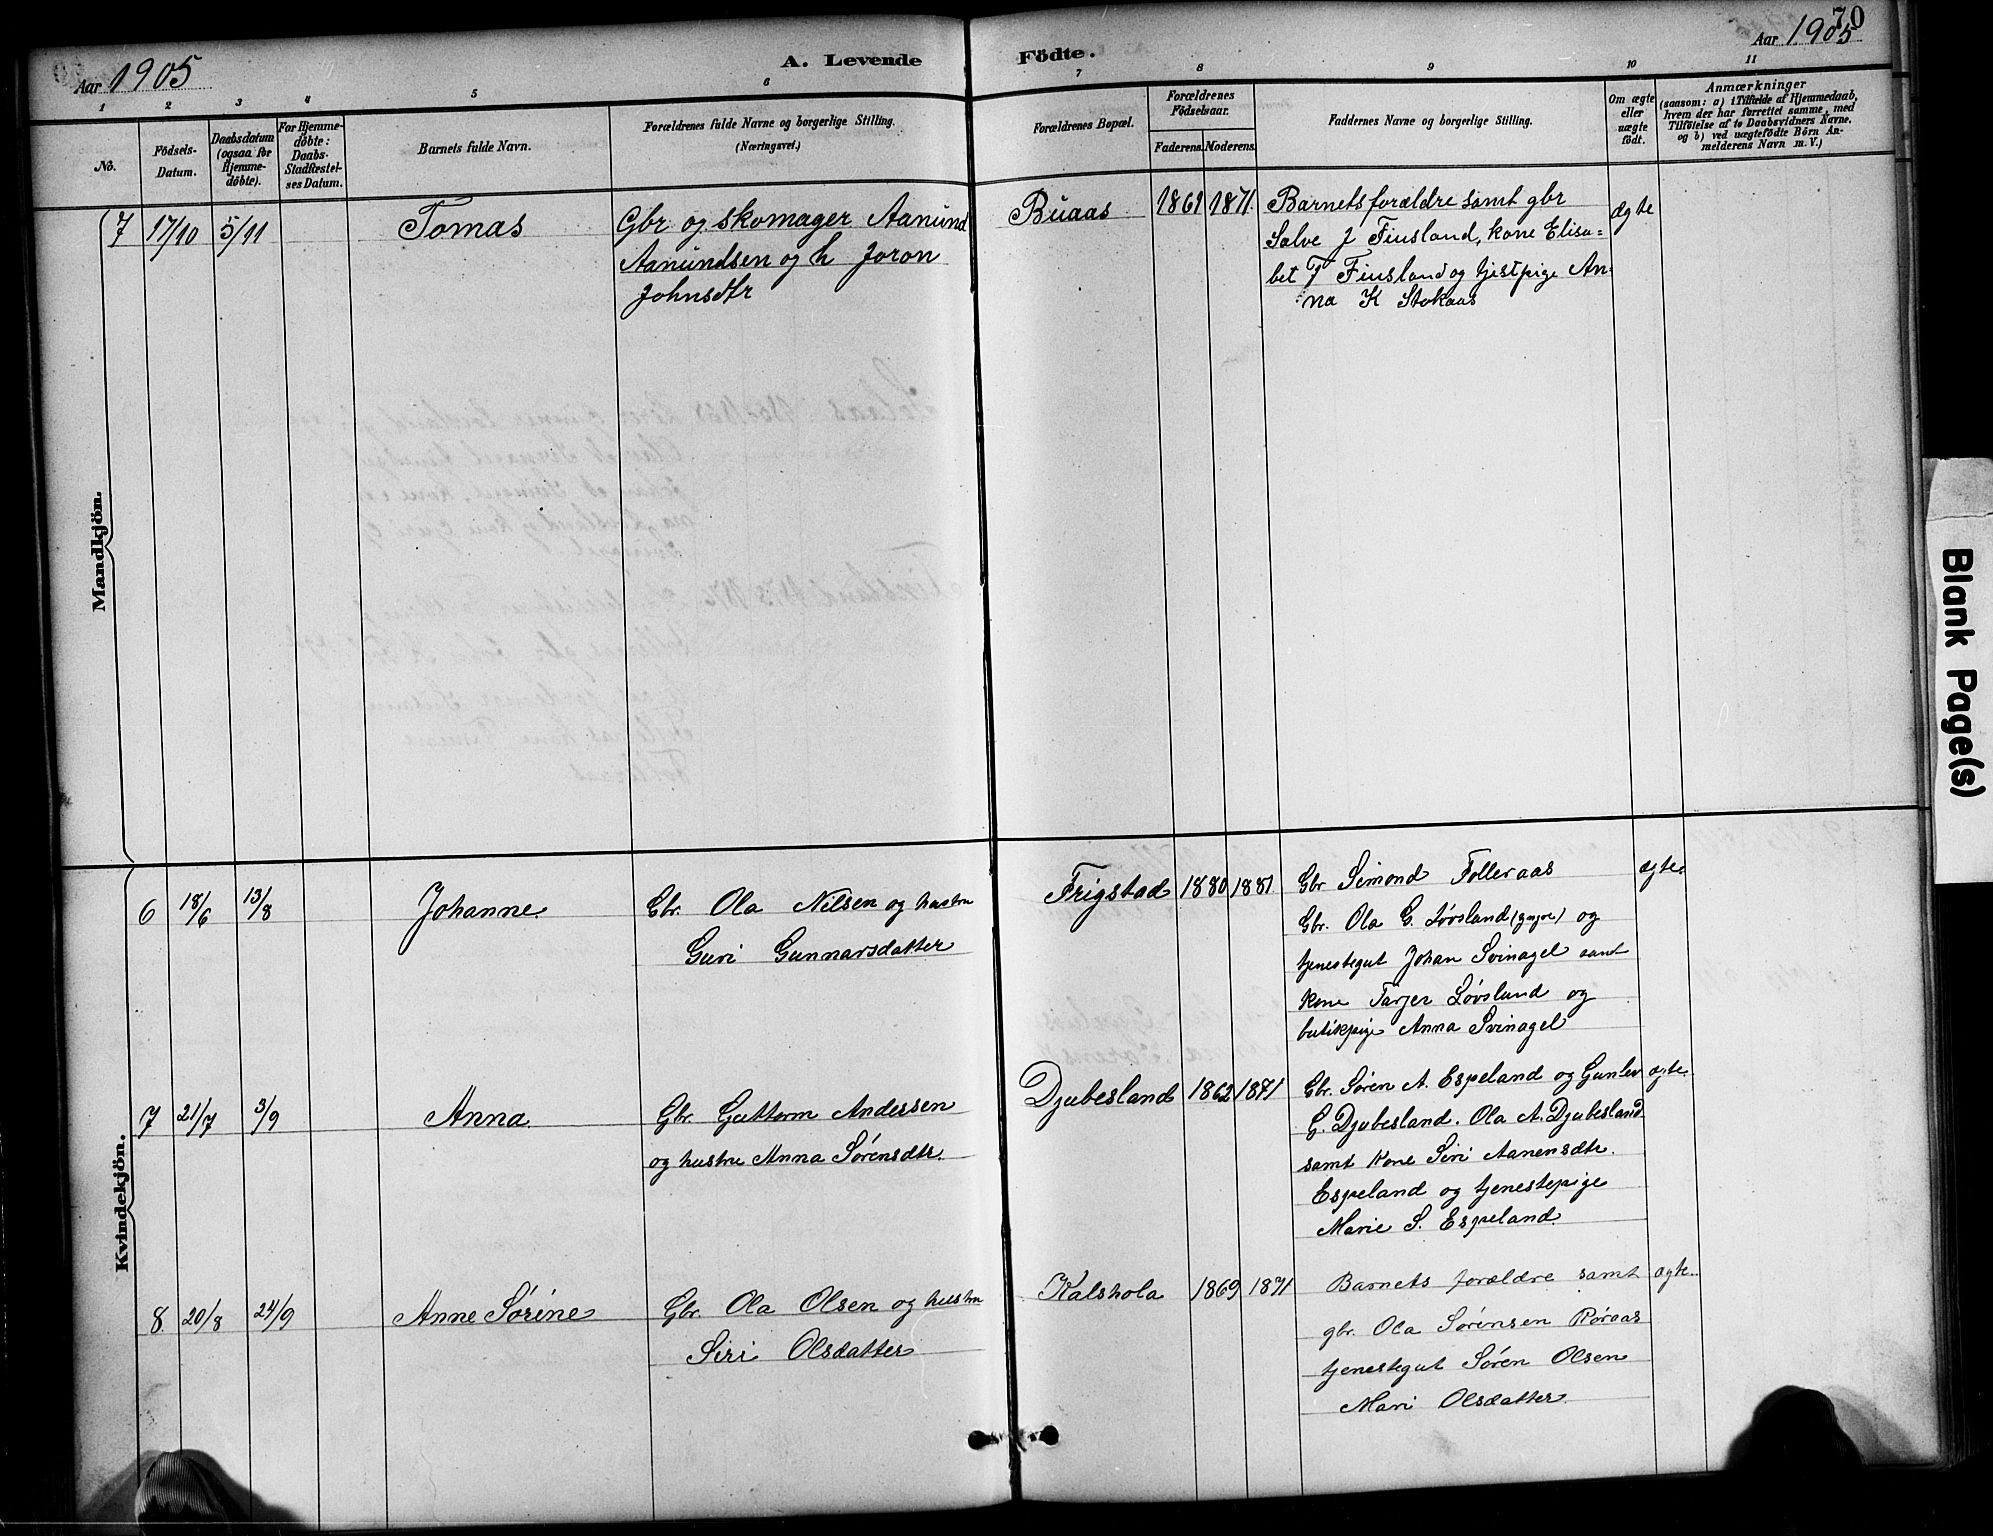 Aar 1905
A. Levende
Födte.
Aar 1905
70
1
2
3
4
5
6
7
8
9
10
11
No.
Födsels-
Datum.
Daabsdatum
(ogsaa for
Hjemme-
døbte).
For Hjemme-
døbte:
Daabs-
Stadfæstel-
ses Datum.
Barnets fulde Navn.
Forældrenes fulde Navne og borgerlige Stilling.
(Næringsvei.)
Forældrenes Bopæl.
Forældrenes
Födselsaar.
Faderens.
Moderens.
Faddernes Navne og borgerlige Stilling.
Om ægte
eller
uægte
født.
Anmærkninger
(saasom: a) i Tilfælde af Hjemmedaab,
hvem der har forrettet samme, med
Tilföielse af to Daabsvidners Navne,
og b) ved uægtefödte Börn An-
melderens Navn m. V.)
Mandkjön.
7 17/10 5/11 Tomas
Gbr og skomager Aanund
Aanundsen og h Joron
Johnsdtr
Buaas 1861 1871
Barnets forældre samt gbr
Salve J Finsland, kone Elisa=
bet T Finsland og tjistpige An-
na K Stokaas
ægte
Kvindekjön.
6 18/6 13/8 Johanne
Gbr. Ola Nilsen og hustru
Guri Gunnarsdatter
Frigstad 1880 1881
Gbr Simond Folleraas
Gbr. Ola G. Løvsland (yngre) og
tjenestegut Johan Svinagel samt
kone Tarjer Løvsland og
butikpige Anna Svinagel
ægte.
7 21/7 3/9 Anna
Gbr. Guttorm Andersen
og hustru Anna Sørensdtr.
Djubesland 1862 1871
Gbr. Søren A. Espeland og Gunlev
G. Djubesland. Ola A. Djubesland
samt kone Siri Aanensdtr.
Espeland og tjenestepige
Marie S. Espeland
ægte.
8. 20/8 24/9 Anne Sørine
Gbr. Ola Olsen og hustru
Siri Olsdatter
Kalshola 1869 1871
Barnets forældre samt
gbr. Ola Sørensen Røraas
tjenestegut Søren Olsen
Mari Olsdatter
ægte.
Blank Page(s)